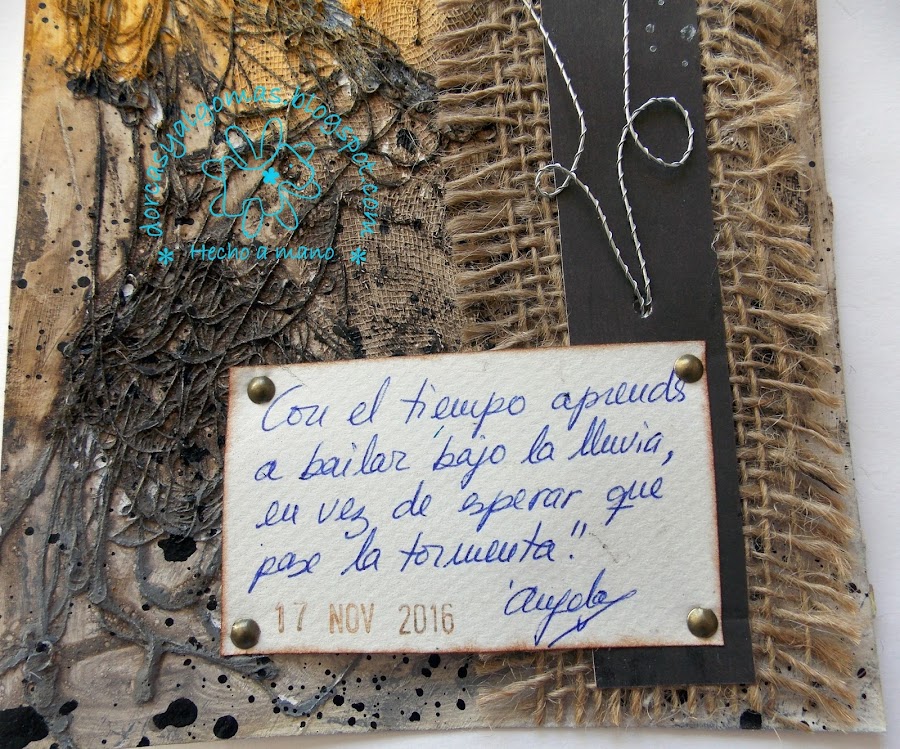 dorcasyalgomas.blogspot.com
* Hecho a mano *
Con el tiempo aprendes
a bailar bajo la lluvia,
en vez de esperar que
pase la tormenta!!
17 NOV 2016